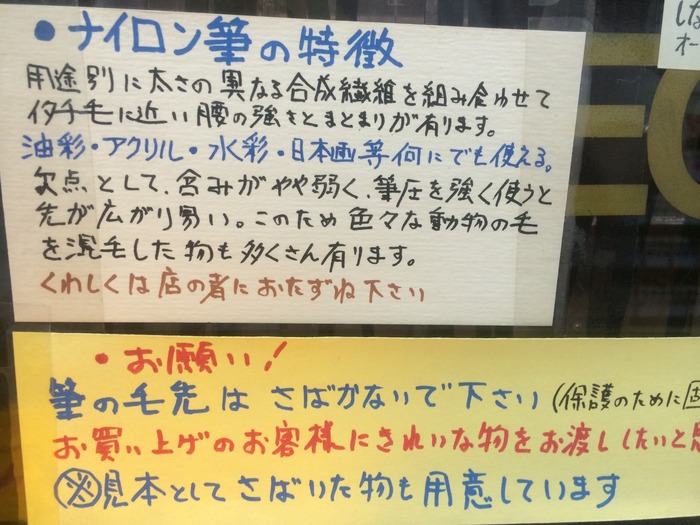 ・ナイロン筆の特徴
用途別に太さの異なる合成繊維を組み合わせて
イタチ毛に近い腰の強さとまとまりが有ります。
油彩・アクリル・水彩・日本画等何にでも使える。
欠点として、含みがやや弱く、筆圧を強く使うと
先が広がり易い。このため色々な動物の毛
を混毛した物も多くさん有ります。
くわしくは店の者におたずね下さい
・お願い!
筆の毛先は さばかないで下さい(保護のために固
お買い上ゲのお客様にきれいな物をお渡ししたいと思
※見本としてさばいた物も用意しています